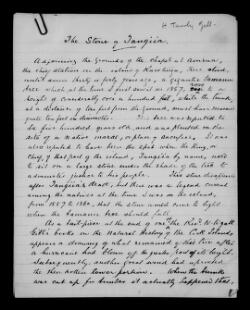 The Stone of Tangiia.
Adjoining the grounds of the chapel at Amuri,
the chief station in the island of Rarotonga, there stood,
until some thirty or forty years ago, a gigantic
tree which at the time I first saw it in 1857, rose to a
height of considerably over a hundred feet, while the trunk,
at a distance of ten feet from the ground, must have measured
quite ten feet in diameter. This tree was reputed to
be five hundred years old and was planted on the
site of a native , a place of . It was
also reputed to have been the spot when the king, or
chief, of that part of the island, Tangiia by name, used
to sit on a large stone under the shade of the tree to
administer justice to his people. This stone disappeared
after Tangiia's death, but there was a legend current
among the natives at the time I was on the island,
from 1857 to 1860, that the stone would come to light
when the tree should fall.
As a last piece at the end of one of the Revd. W. Wyatt
Gill's books on the Natural History of the Cook Islands,
appears a drawing of what remained of this tree after
a hurricane had blown up the greater part of its height.
Subsequently, another great wind had uprooted
the then rotten lower portion. When the trunk
was cut up for timber it actually happened that,